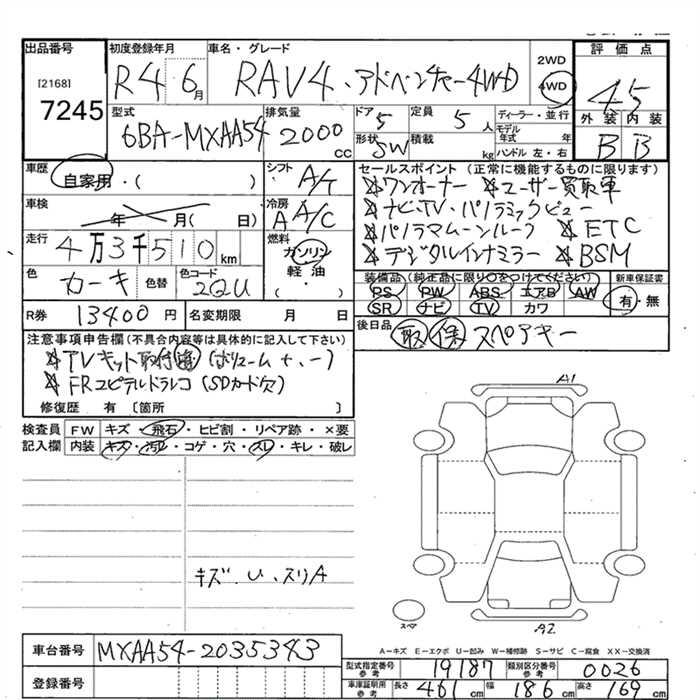 出品番号 初度登録年月 車名・グレード 2WD 4WD 評価点
[2168] 7245 R4 6月 RAV4、アドベンチャー4WD 4.5
型式 排気量 ドア 定員 ディーラー・並行 外装 内装
6BA-MXAA54 2000cc 5 5人 モデル年式 年 B B
形状 SW 積載 kg ハンドル 左・右
車歴 自家用・( ) シフト A/T セールスポイント (正常に機能するものに限ります)
ワンオーナー ユーザー買取車
車検 年 月( 日) 冷房 A A/C ナビ、TV、パノラミックビュー
パノラマムーンルーフ ETC
走行 4万3千510km 燃料 ガソリン デジタルインナミラー BSM
軽油・( )
色 カーキ 色替 色コード 2QU 装備品 (純正品に限り○をつけてください) 新車保証書
PS PW ABS エアB AW 有・無
SR ナビ TV カワ
R券 13400円 名変期限 月 日 後日品 取 保 スペアキー
注意事項申告欄(不具合内容等は具体的に記入して下さい)
TVキット取付済 (ボリューム+、-)
FRユピテルドラレコ (SDカード欠)
修復歴 有 〔箇所 〕
検査員 FW キズ・飛石・ヒビ割・リペア跡・×要
記入欄 内装 キズ・汚レ・コゲ・穴・スレ・キレ・破レ
A1
キズ、U、スリA
スペア
A2
A-キズ E-エクボ U-凹み W-補修跡 S-サビ C-腐食 XX-交換済
車台番号 MXAA54-2035343
型式指定番号 参考 19187 類別区分番号 参考 0026
登録番号 車庫証明用 参考 長さ 461cm 幅 186cm 高さ 169cm